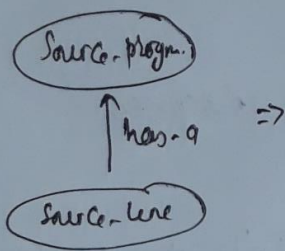 Source-progm.
has-a
⇒
Source-line